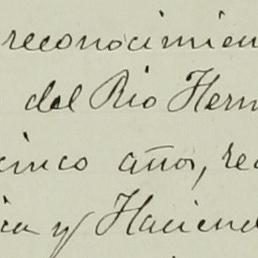 reconocimien
del Rio Hern
cinco años, re
ica y Haciend